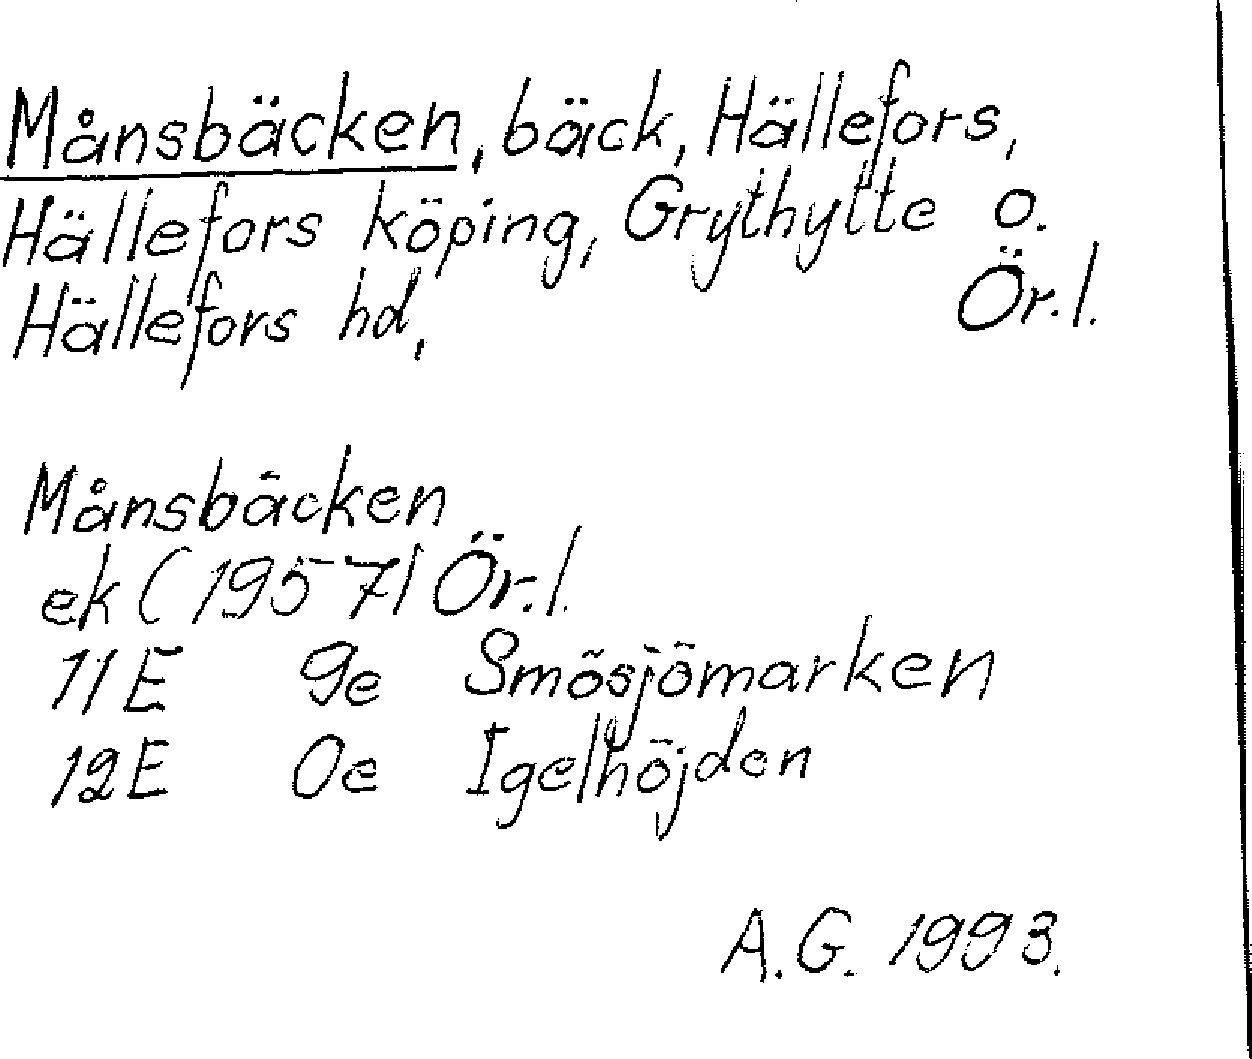 Månsbäcken, bäck, Hällefors,
Hällefors köping, Grythytte o.
Hällefors hd, Ör.l.
Månsbäcken
ek (1957) Ör.l.
11E 9e Smösjömarken
12E 0e Igelhöjden
A.G. 1993.